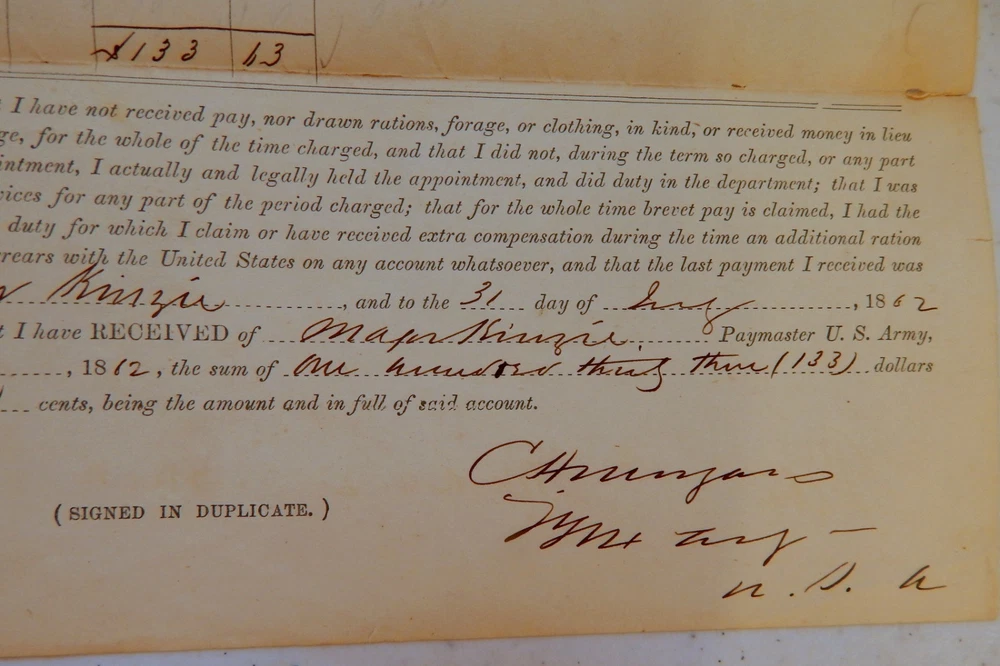 $133 63
I have not received pay, nor drawn rations, forage, or clothing, in kind, or received money in lieu
ge, for the whole of the time charged, and that I did not, during the term so charged, or any part
intment, I actually and legally held the appointment, and did duty in the department; that I was
vices for any part of the period charged; that for the whole time brevet pay is claimed, I had the
duty for which I claim or have received extra compensation during the time an additional ration
rrears with the United States on any account whatsoever, and that the last payment I received was
Kinzie, and to the 31 day of July, 1862
t I have RECEIVED of Major Kinzie, Paymaster U. S. Army,
, 1862, the sum of One hundred thirty three (133) dollars
cents, being the amount and in full of said account.
(SIGNED IN DUPLICATE.)
U. S. A